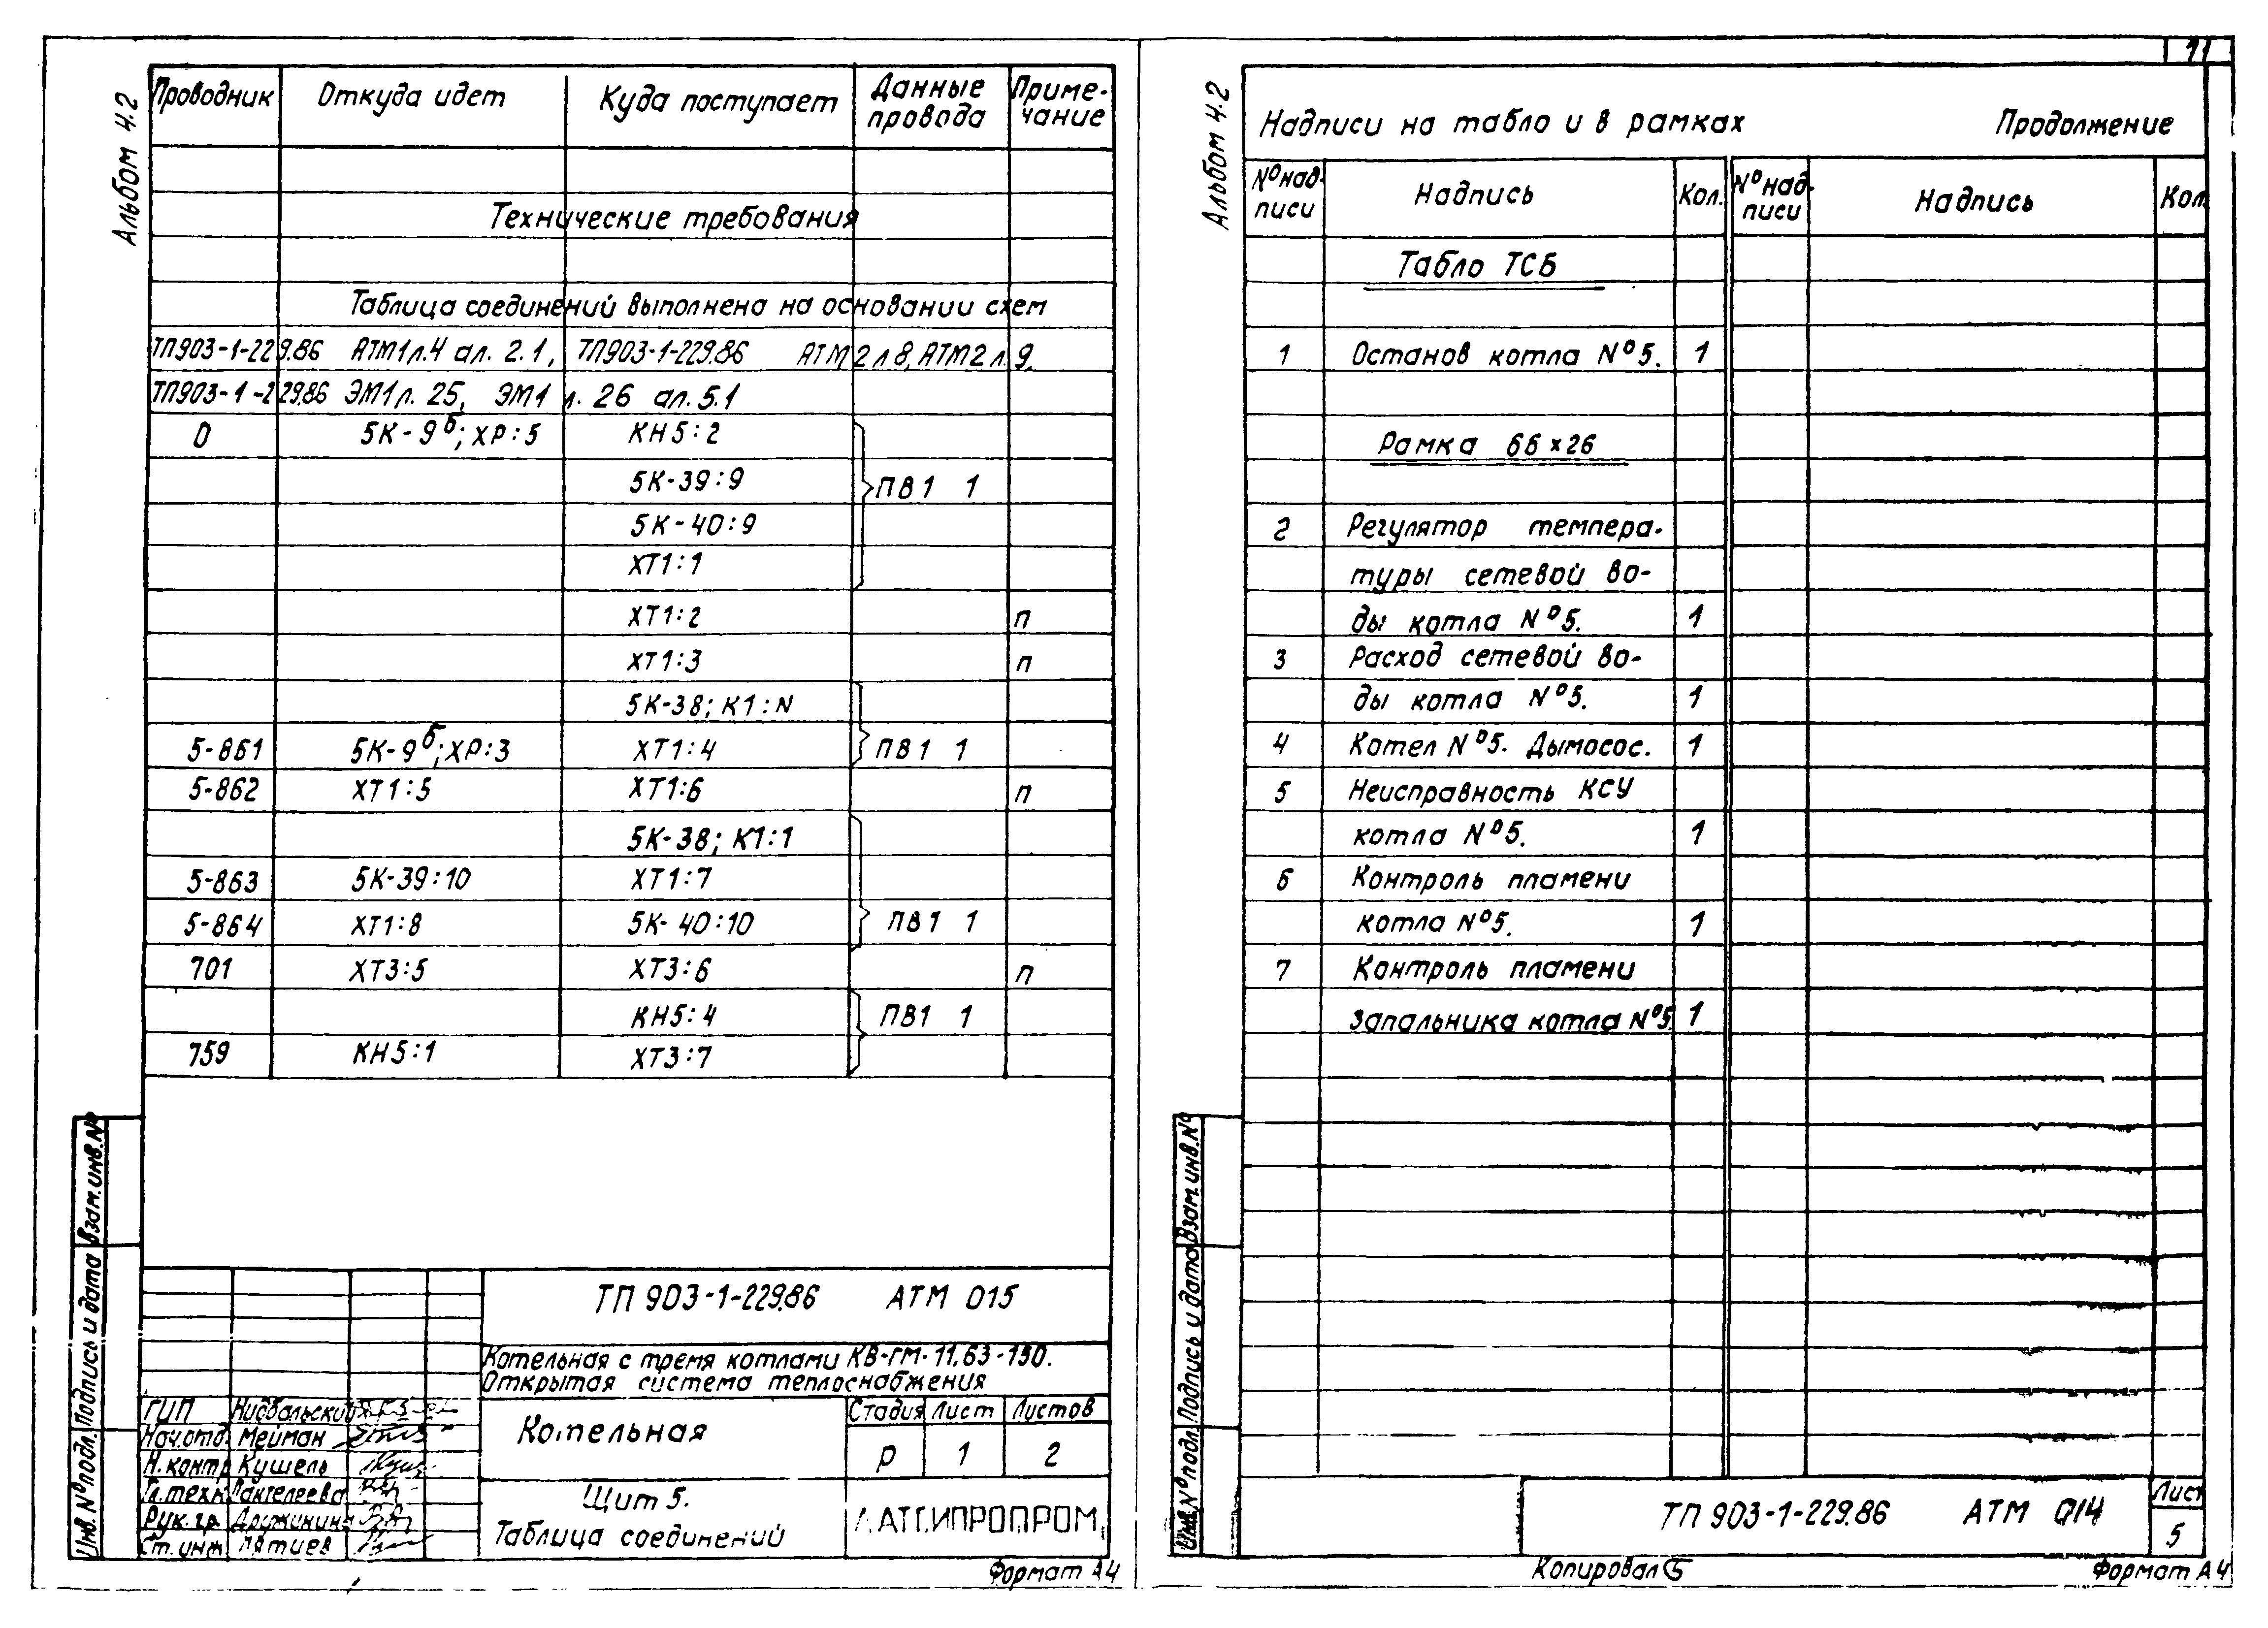 Альбом 4.2
Проводник Откуда идет Куда поступает Данные провода Примечание
Технические требования
Таблица соединений выполнена на основании схем
ТП903-1-229.86 АТМ1л.4 ал. 2.1, ТП903-1-229.86 АТМ2 л 8, АТМ2 л. 9.
ТП903-1-229.86 ЭМ1л. 25, ЭМ1 л. 26 ал. 5.1
0 5К-9б; ХР:5 КН5:2
5К-39:9 ПВ1 1
5К-40:9
ХТ1:1
ХТ1:2 п
ХТ1:3 п
5К-38; К1:N
5-861 5К-9б; ХР:3 ХТ1:4 ПВ1 1
5-862 ХТ1:5 ХТ1:6 п
5К-38; К1:1
5-863 5К-39:10 ХТ1:7
5-864 ХТ1:8 5К-40:10 ПВ1 1
701 ХТ3:5 ХТ3:6 п
КН5:4 ПВ1 1
759 КН5:1 ХТ3:7
Взам.инв.№
Подпись и дата
Инв.№подл.
ТП 903-1-229.86 АТМ 015
Котельная с тремя котлами КВ-ГМ-11,63-150.
Открытая система теплоснабжения
ГИП Нисбальский
Нач.отд. Мейман
Н.контр Кушель
Гл.техн. Пантелеева
Рук.гр.
Ст.инж.
Котельная
Стадия Лист Листов
Р 1 2
Щит 5.
Таблица соединений
ЛАТГИПРОПРОМ
Формат А4
11
Альбом 4.2
Надписи на табло и в рамках Продолжение
№ над-писи Надпись Кол. № над-писи Надпись Кол.
Табло ТСБ
1 Останов котла №5. 1
Рамка 66×26
2 Регулятор темпера-
туры сетевой во-
ды котла №5. 1
3 Расход сетевой во-
ды котла №5. 1
4 Котел №5. Дымосос. 1
5 Неисправность КСУ
котла №5. 1
6 Контроль пламени
котла №5. 1
7 Контроль пламени
запальника котла №5. 1
Взам.инв.№
Подпись и дата
Инв.№подл.
ТП 903-1-229.86 АТМ 014
Лист
5
Копировал
Формат А4